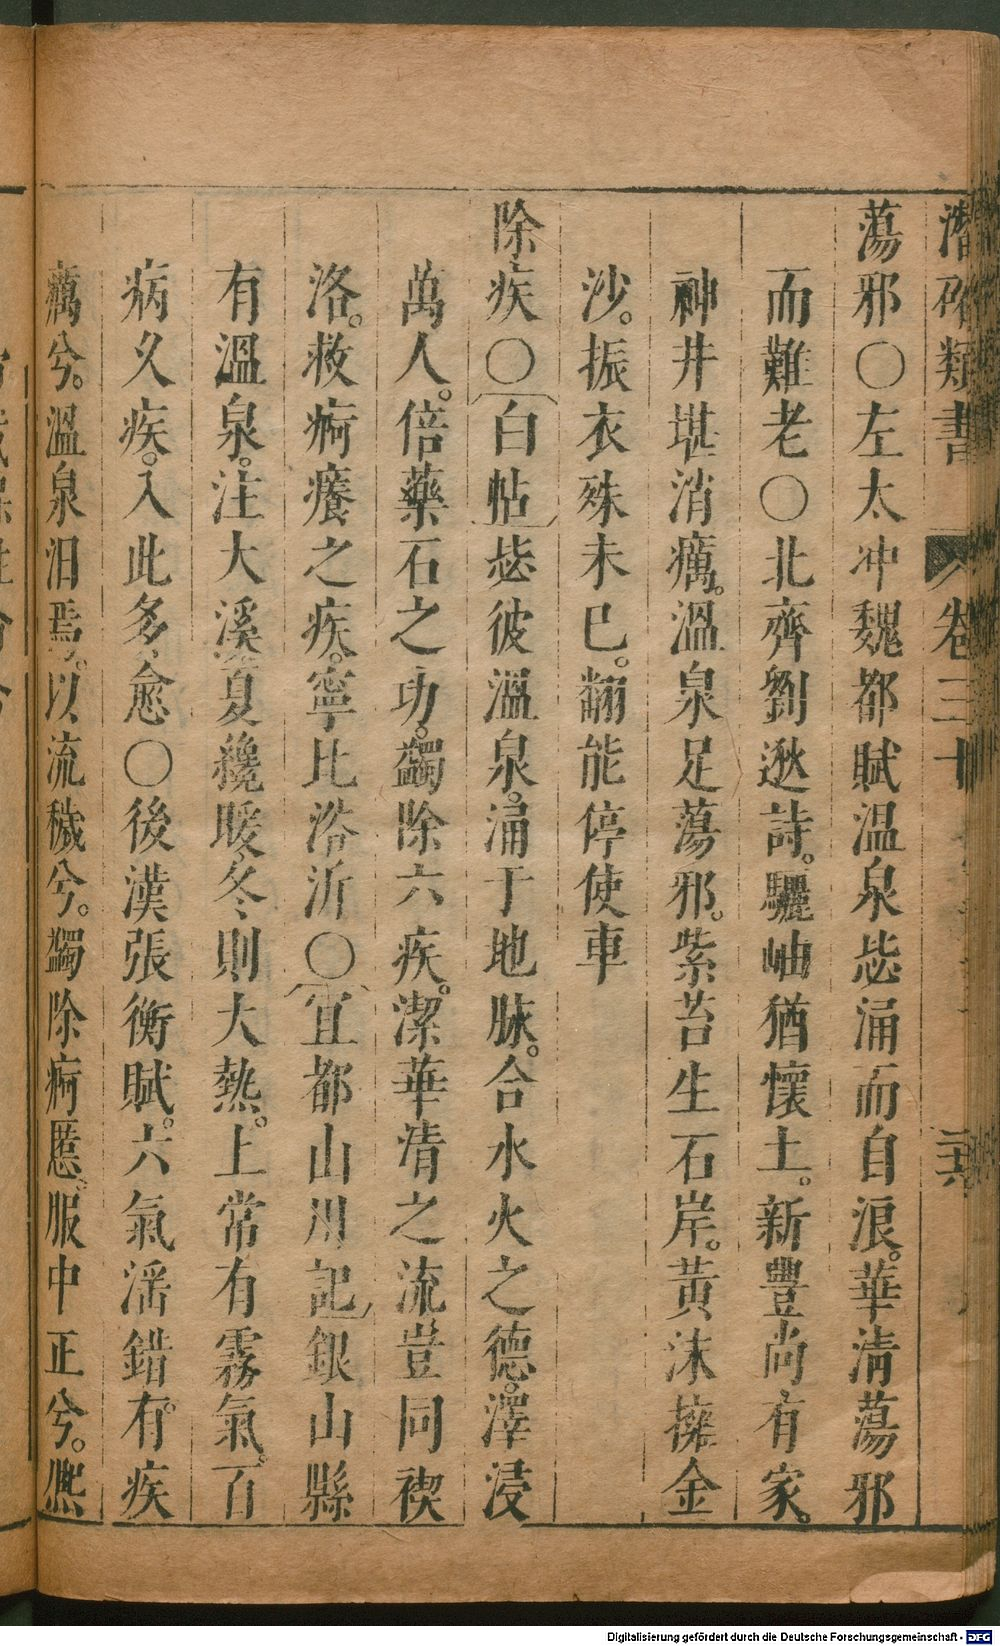 潛确類書 卷三十 二六
蕩邪〇左太冲魏都賦温泉毖涌而自浪。華清蕩邪
而難老〇北齊劉逖詩。驪岫猶懷土。新豐尚有家。
神井堪消癘。溫泉足蕩邪。紫苔生石岸。黃沫擁金
沙。振衣殊未已。翻能停使車
除疾〇白帖毖彼溫泉。涌于地脉。合水火之德。澤浸
萬人。倍藥石之功。蠲除六疾。潔華清之流豈同禊
洛。救痾癢之疾。寧比浴沂〇宜都山川記銀山縣
有溫泉。注大溪夏纔暖冬則大熱。上常有霧氣。百
病久疾。入此多愈〇後漢張衡賦。六氣淫錯。有疾
癘兮。溫泉汨焉。以流穢兮。蠲除痾慝。服中正兮。熙
Digitalisierung gefördert durch die Deutsche Forschungsgemeinschaft - DFG